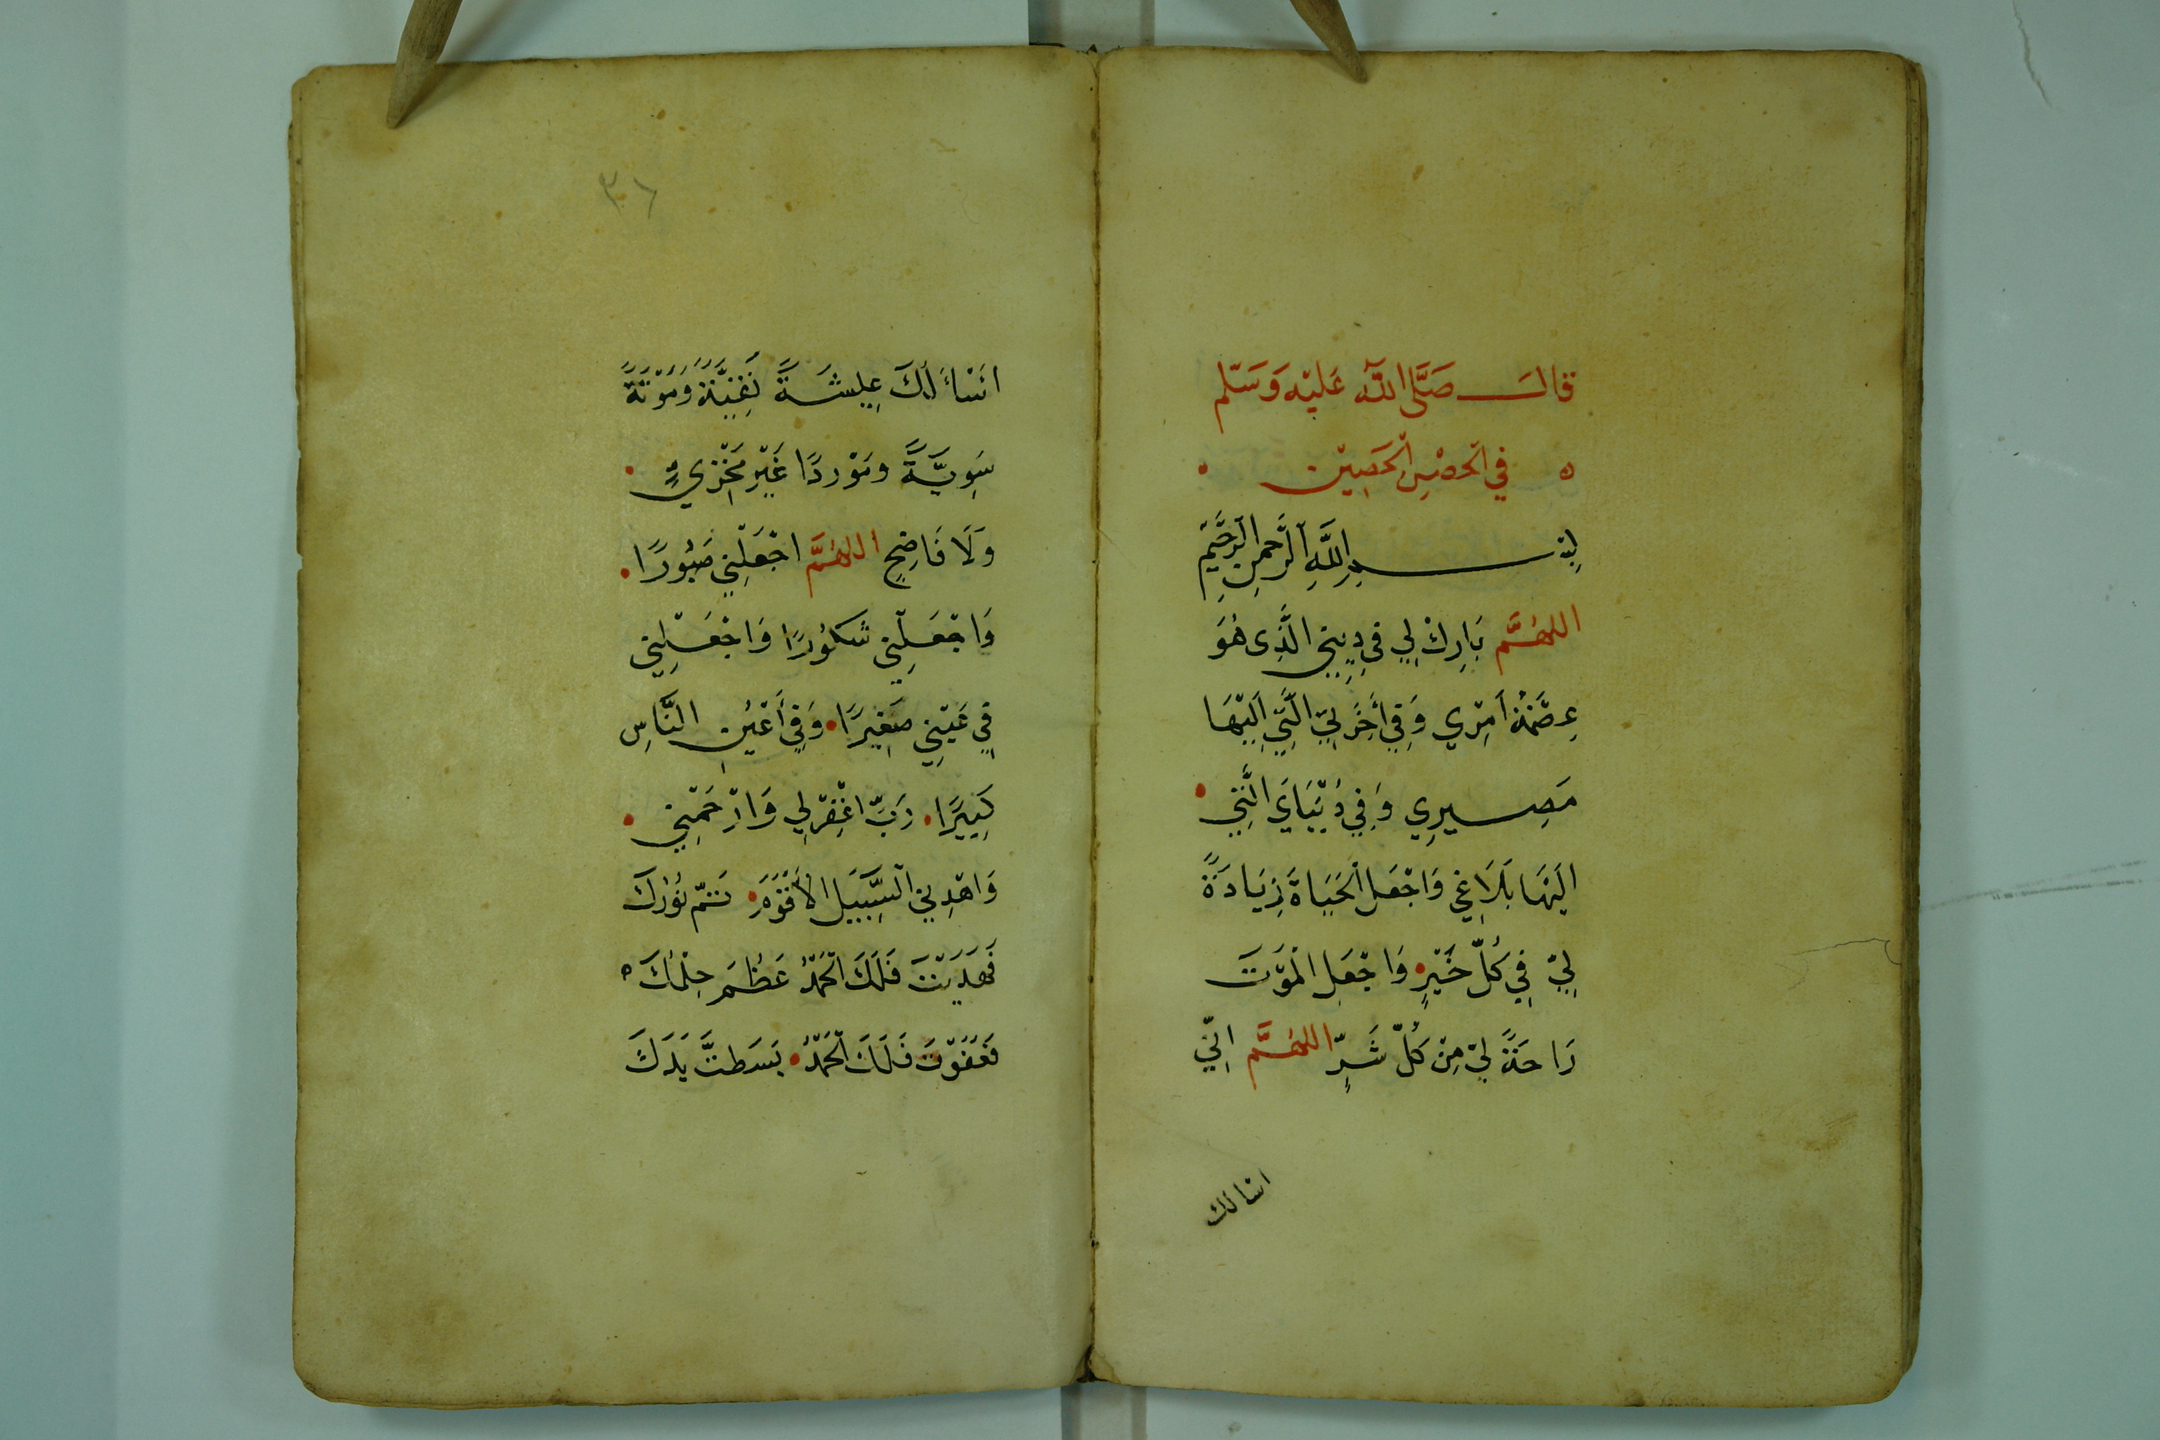 قالَ صَلَّى اللّٰه عَلَيْهِ وَسَلّم
ه في الحصْنِ الحَصِيْن
بِسْمِ اللَّهِ الرَّحْمنِ الرَّحِيْمِ
اللهُمَّ بَارِكْ لِي فِي دِيْنِي الَّذِى هُوَ
عِصْمَةُ اَمْرِي وَفِي أَخِرَتِيْ الَّتِيْ اِلَيْهَا
مَصِيرِي وَفِي دُنْيَايَ الَّتِي
اِلَيْهَا بَلَاغِي وَاجْعَل الْحَيَاةَ زِيَادَةً
لِيْ فِي كُلّ خَيْرٍ وَاجْعَلِ الْمَوْتَ
رَاحَةً لِيْ مِنْ كُلّ شَرٍّ اللهُمَّ اِنّي
اسالك
٣٦
اَسْاءَلُكَ عِيشَةً نَقِيَّةً وَمَوْتَةً
سَوِيَّةً ومَوْردًا غَيْرِ مَخْزِيٍّ
وَلَا فَاضِحٍ اللهُمَّ اجْعَلْنِي صَبُورًا
وَاجْعَلْنِي شَكُوْرًا وَاجْعَلْنِي
فِي عَيْنِي صَغِيرًا وَفِي أَعْيُنِ النَّاسِ
كَبِيْرًا رَبّ اغْفِرْلِي وَارْحَمْنِي
وَاهْدِنِي السَّبِيَل الأَقْوَمَ تَمّ نُوْرُكَ
فَهَدَيْتَ فَلَكَ الْحَمْدُ عَظُمَ حِلْمُكَ ه
فَعَفَوْتَ فَلَكَ الْحَمْدُ بَسَطتَّ يَدَكَ